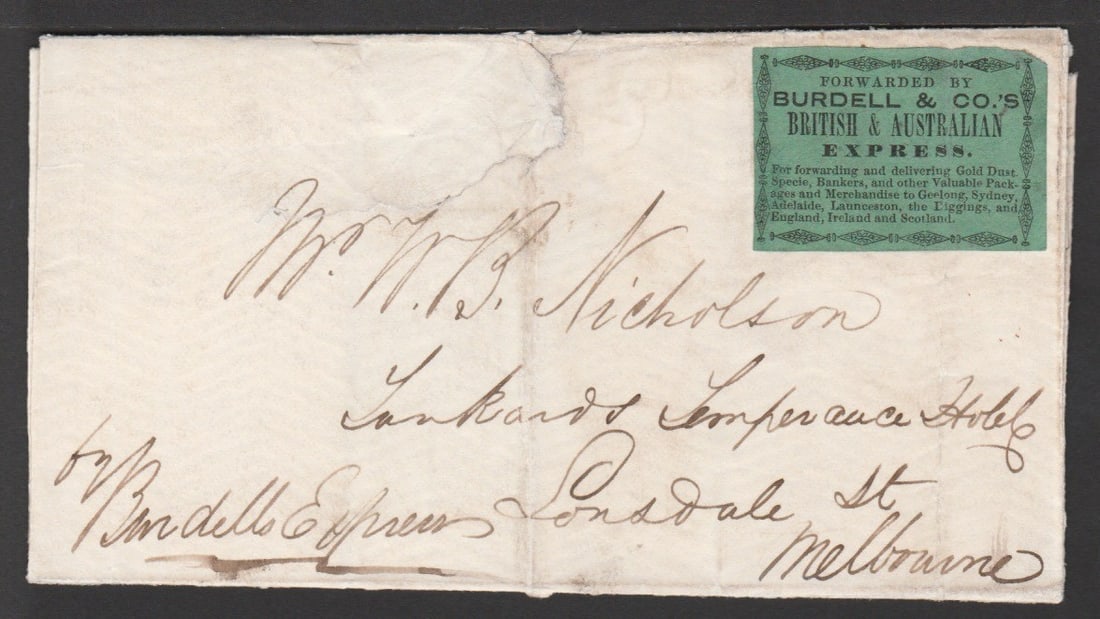 FORWARDED BY
BURDELL & CO.'S
BRITISH & AUSTRALIAN
EXPRESS.
For forwarding and delivering Gold Dust
Specie, Bankers, and other Valuable Pack-
ages and Merchandise to Geelong, Sydney,
Adelaide, Launceston, the Diggings, and
England, Ireland and Scotland.
Mr. W. B. Nicholson
Tankards Temperance Hotel
Lonsdale St
Melbourne
by
Burdells Express